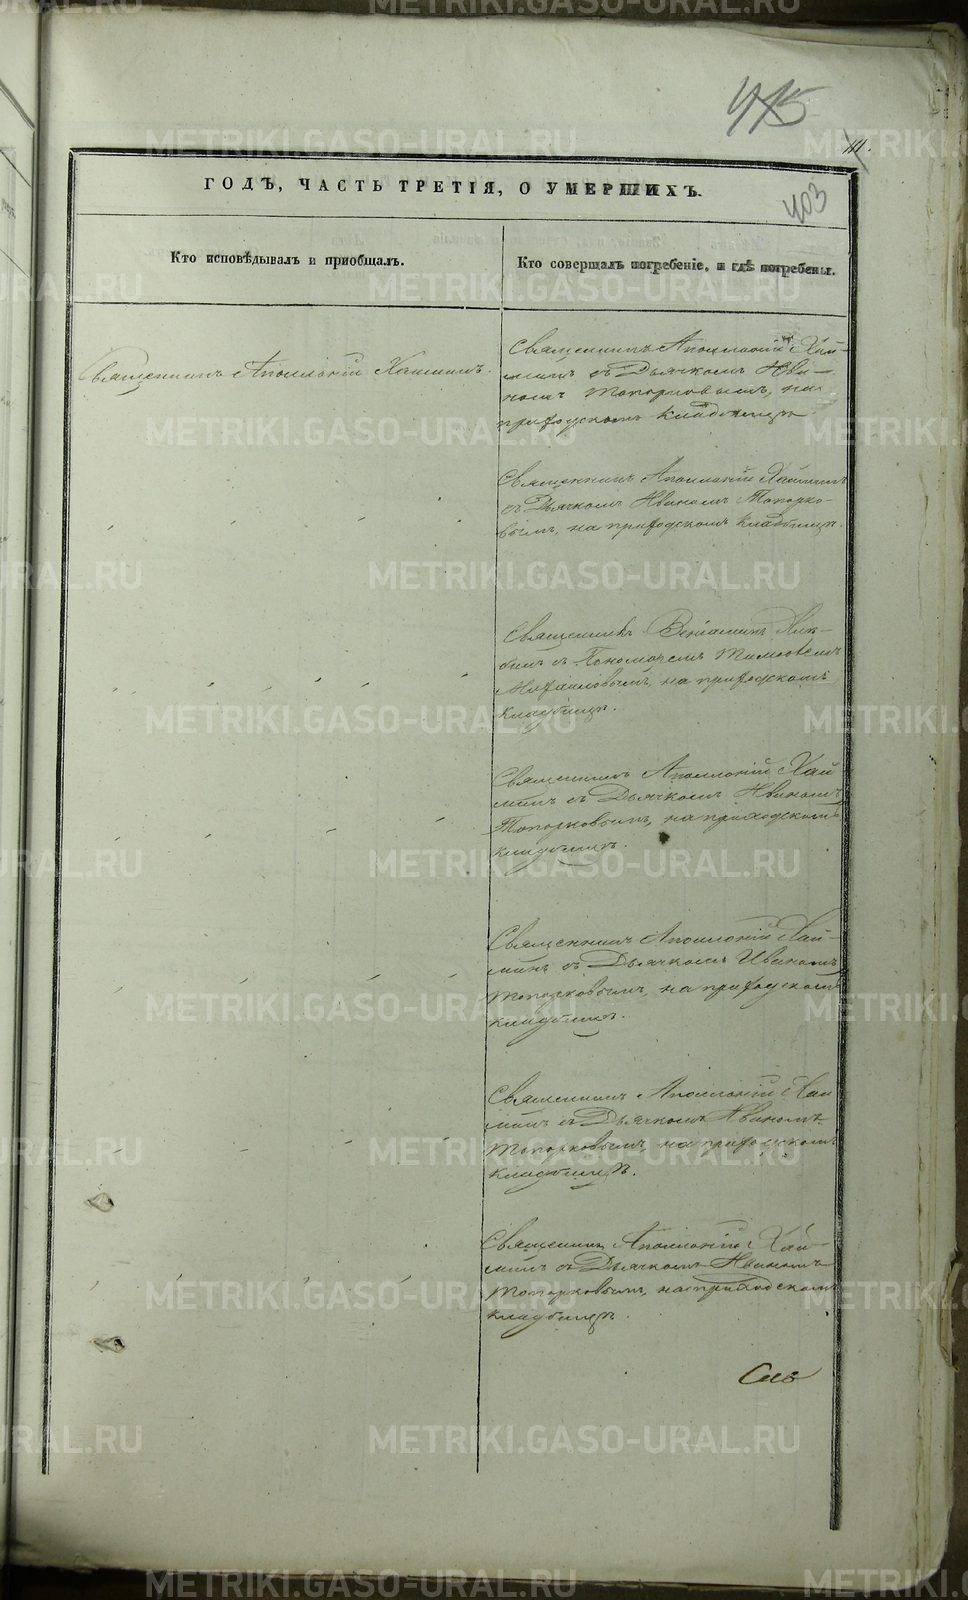 415
111.
403
ГОДЪ, ЧАСТЬ ТРЕТІЯ, О УМЕРШИХЪ.
Кто исповѣдывалъ и приобщалъ.
Кто совершалъ погребеніе, и гдѣ погребены.
Священникъ Аполлоній Хайминъ.
Священникъ Аполлоній Хай-
минъ съ Дьячкомъ Ива-
номъ Топорковымъ, на
приходскомъ кладбищѣ.
Священникъ Аполлоній Хайминъ
съ Дьячкомъ Иваномъ Топорко-
вымъ, на приходскомъ кладбищѣ.
Священникъ Веніаминъ
съ Пономаремъ Тимоѳеемъ
на приходскомъ
кладбищѣ.
Священникъ Аполлоній Хай
минъ съ Дьячкомъ Иваномъ
Топорковымъ, на приходскомъ
кладбищѣ.
Священникъ Аполлоній Хай-
минъ съ Дьячкомъ Иваномъ
Топорковымъ, на приходскомъ
кладбищѣ.
Священникъ Аполлоній Хай
минъ съ Дьячкомъ Иваномъ
Топорковымъ, на приходскомъ
кладбищѣ.
Священникъ Аполлоній Хай-
минъ съ Дьячкомъ Иваномъ
Топорковымъ, на приходскомъ
кладбищѣ.
METRIKI.GASO-URAL.RU